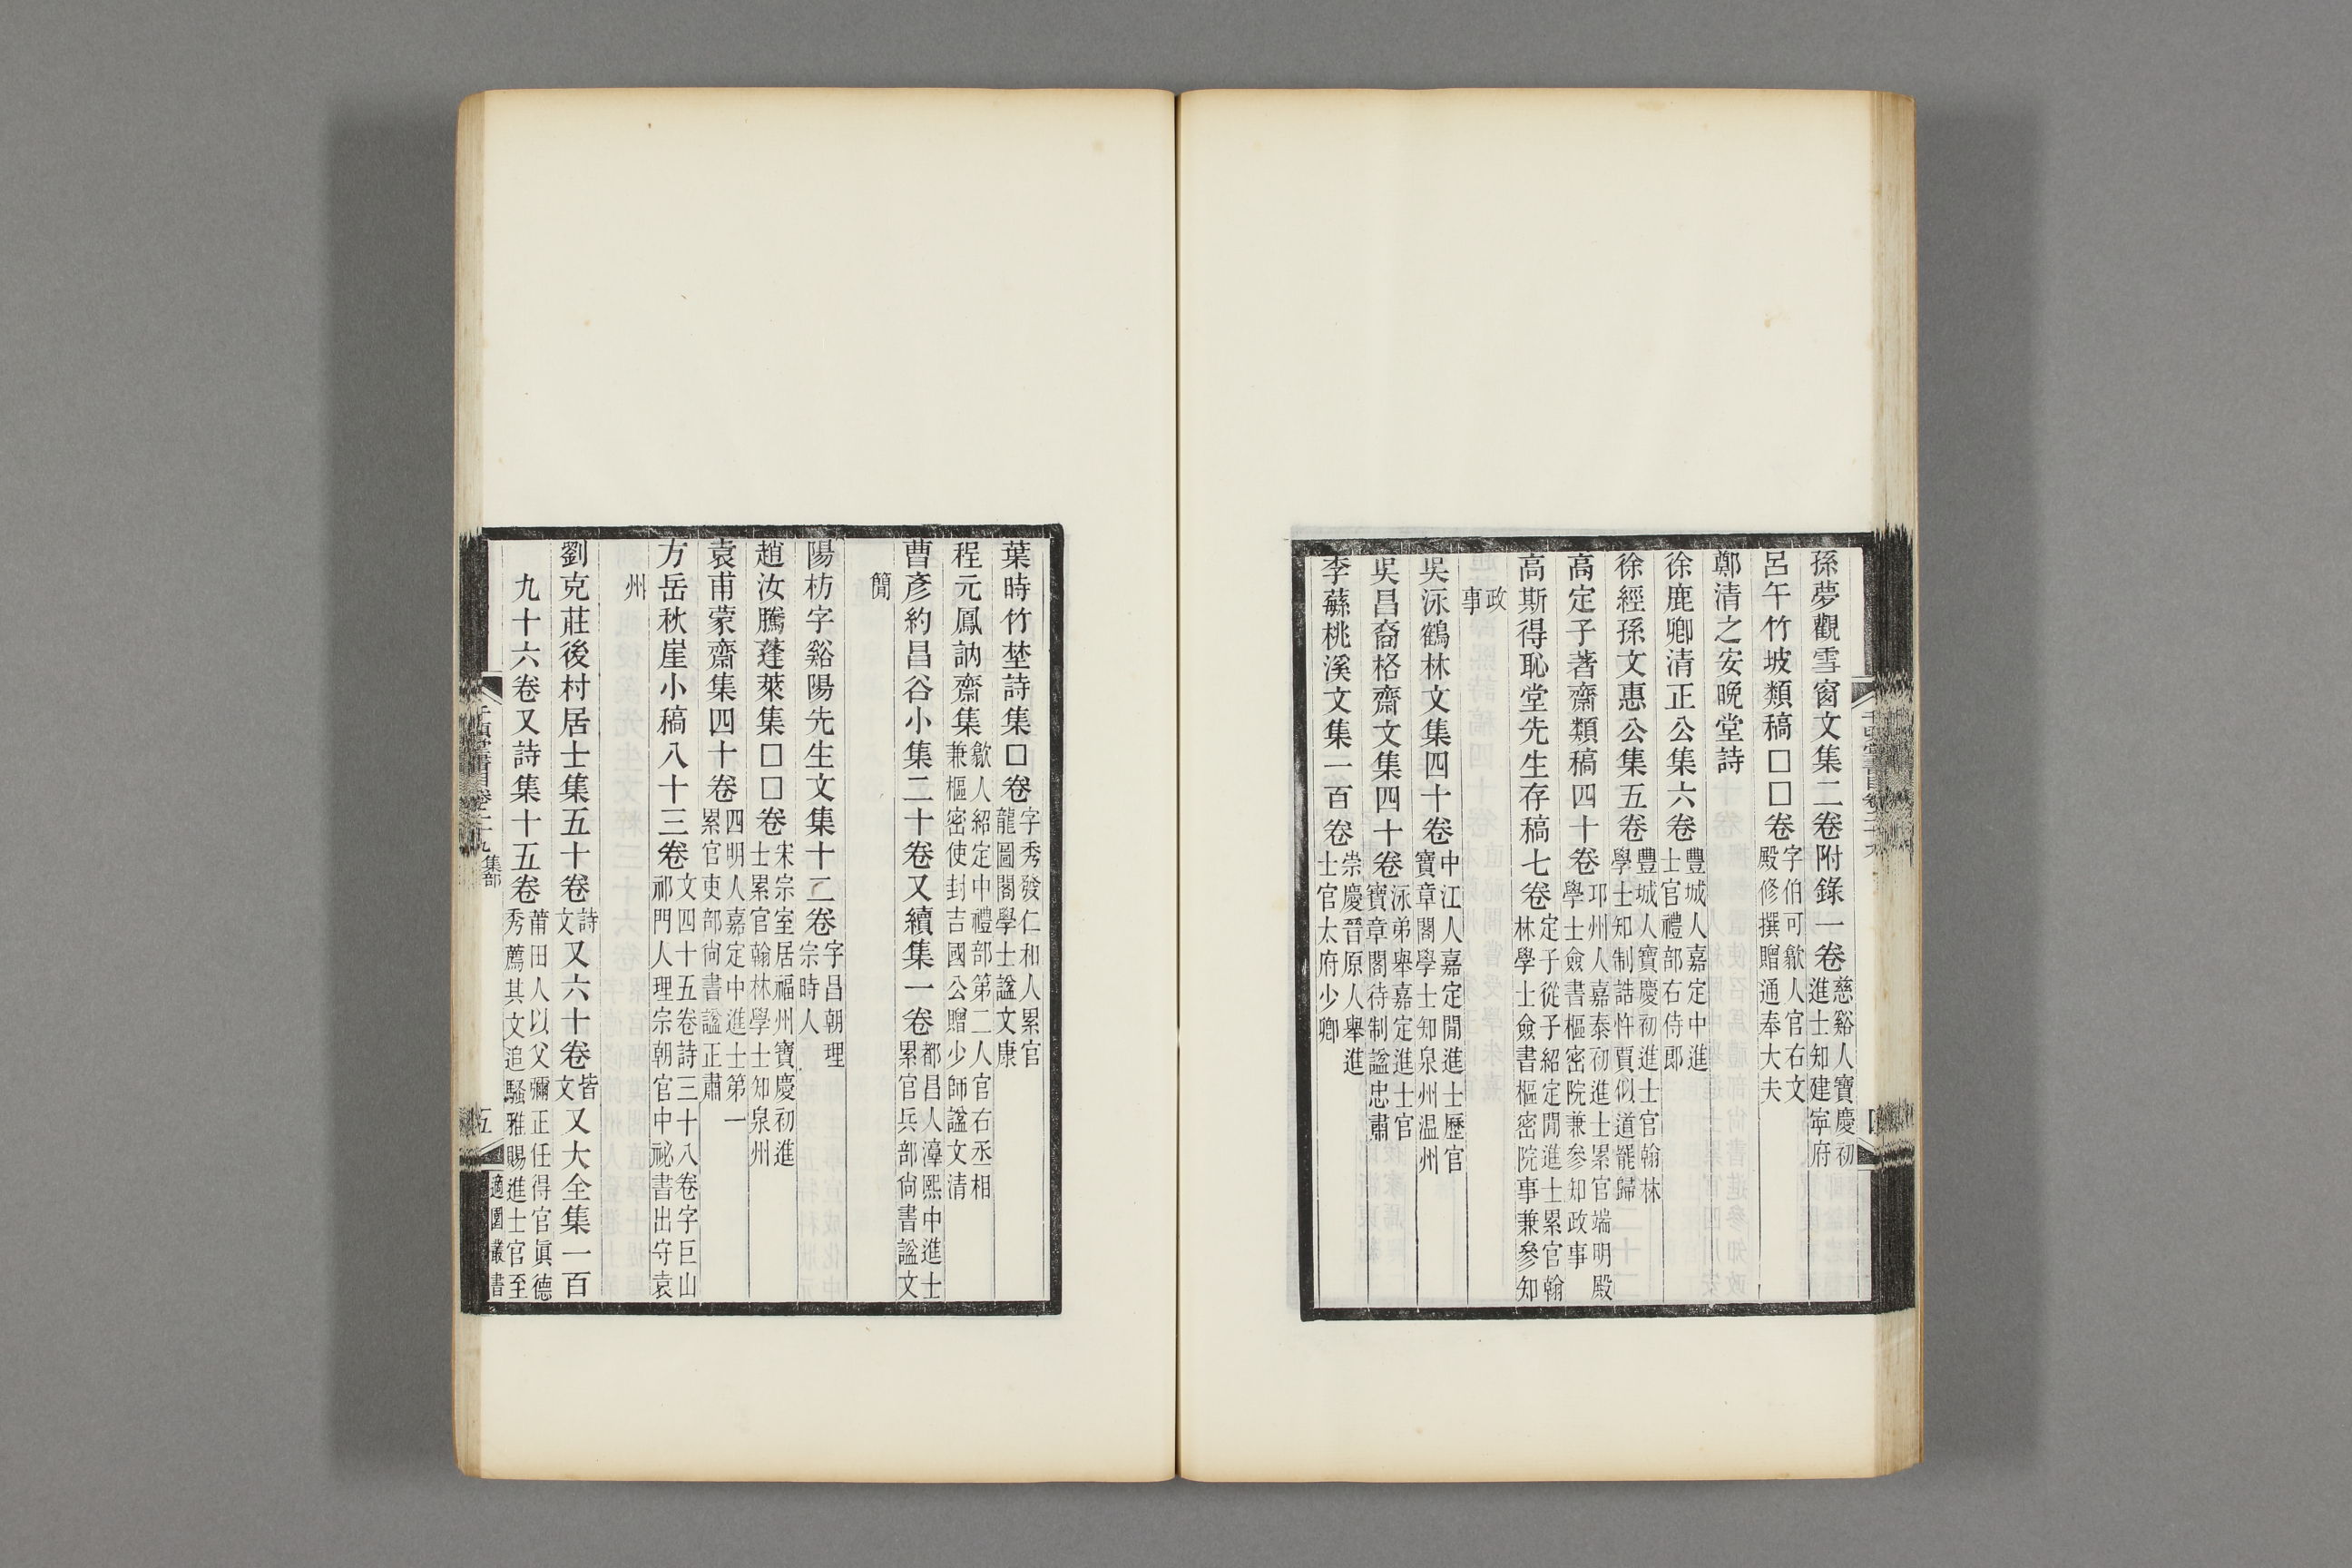 孫夢觀雪窗文集二卷附錄一卷慈谿人寶慶初進士知建寧府
呂午竹坡類稿□□卷字伯可歙人官右文殿修撰贈通奉大夫
鄭清之安晚堂詩
徐鹿卿清正公集六卷豐城人嘉定中進士官禮部右侍郎
徐經孫文惠公集五卷豐城人寶慶初進士官翰林學士知制誥忤賈似道罷歸
高定子著齋類稿四十卷邛州人嘉泰初進士累官端明殿學士僉書樞密院兼參知政事
高斯得恥堂先生存稿七卷定子從子紹定閒進士累官翰林學士僉書樞密院事兼參知
政事
吳泳鶴林文集四十卷中江人嘉定閒進士歷官寶章閣學士知泉州温州
吳昌裔格齋文集四十卷泳弟舉嘉定進士官寶章閣待制諡忠肅
李蘇桃溪文集一百卷崇慶晉原人舉進士官太府少卿
葉時竹埜詩集□卷字秀發仁和人累官龍圖閣學士諡文康
程元鳳訥齋集歙人紹定中禮部第二人官右丞相兼樞密使封吉國公贈少師諡文清
曹彥約昌谷小集二十卷又續集一卷都昌人淳熙中進士累官兵部尚書諡文
簡
陽枋字谿陽先生文集十二卷字昌朝理宗時人
趙汝騰蓬萊集□□卷宋宗室居福州寶慶初進士累官翰林學士知泉州
袁甫蒙齋集四十卷四明人嘉定中進士第一累官吏部尚書諡正肅
方岳秋崖小稿八十三卷文四十五卷詩三十八卷字巨山祁門人理宗朝官中祕書出守袁
州
劉克莊後村居士集五十卷詩文又六十卷皆文又大全集一百
九十六卷又詩集十五卷莆田人以父彌正任得官眞德秀薦其文追騷雅賜進士官至
集部
五
適園叢書